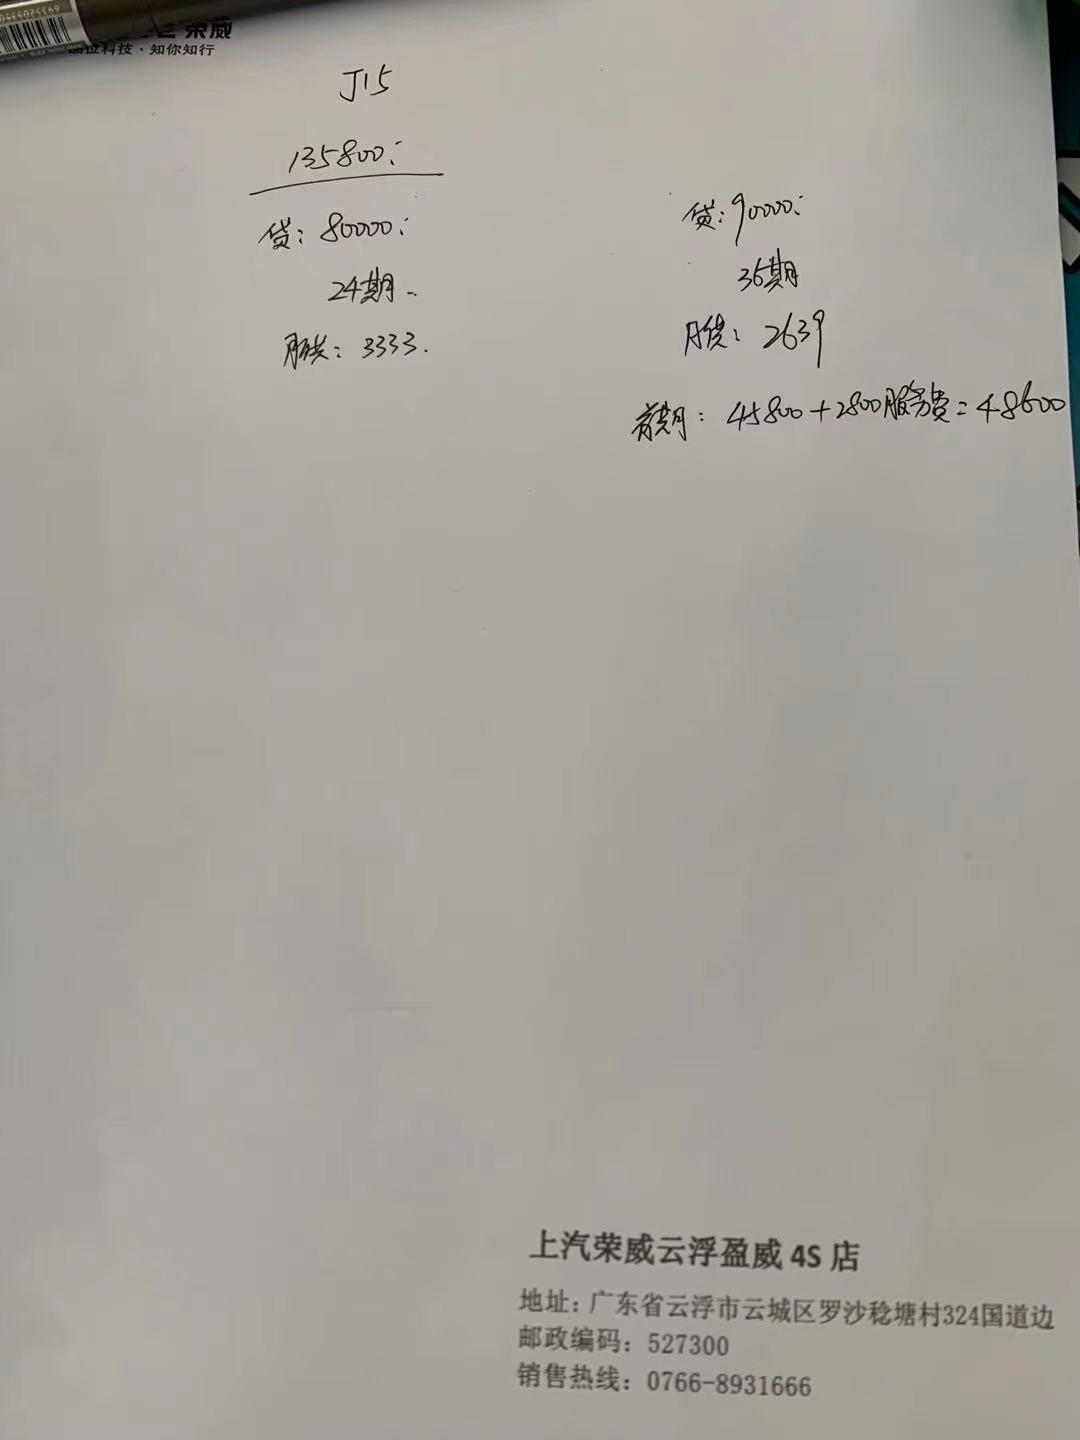 荣威
品位科技·知你知行
J15
135800:
贷: 80000:
24期..
月供: 3333.
贷: 90000:
36期
月供: 2639
首期: 45800+2800服务费=48600
上汽荣威云浮盈威 4S 店
地址: 广东省云浮市云城区罗沙稔塘村324国道边
邮政编码: 527300
销售热线: 0766-8931666